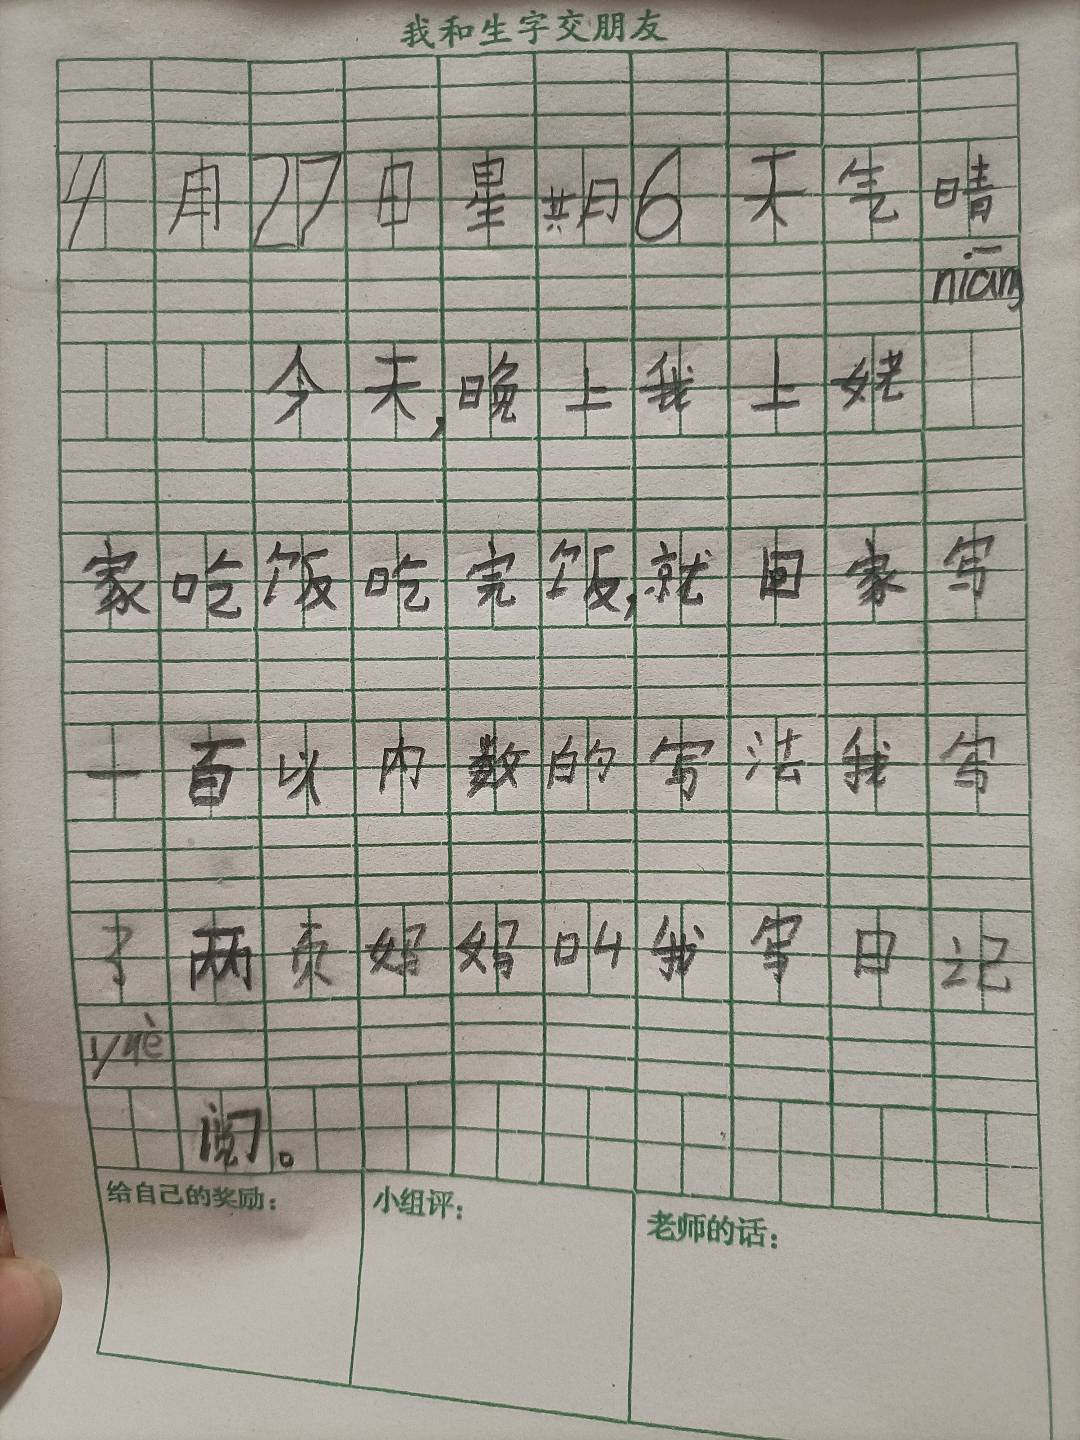 我和生字交朋友
4月27日星期6天气晴
niāng
今天,晚上我上姥
家吃饭吃完饭,就回家写
一百以内数的写法我写
了两页妈妈叫我写日记
yuè
阅。
给自己的奖励：
小组评：
老师的话：